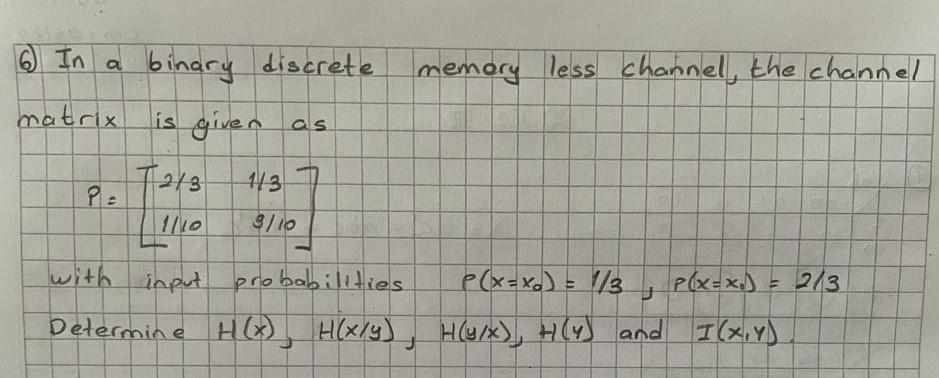 6) In a binary discrete memory less channel, the channel
matrix is given as
P = [2/3 1/3
1/10 9/10]
with input probabilities P(x=x₀) = 1/3, P(x=x₁) = 2/3
Determine H(x), H(x/y), H(y/x), H(Y) and I(X,Y).